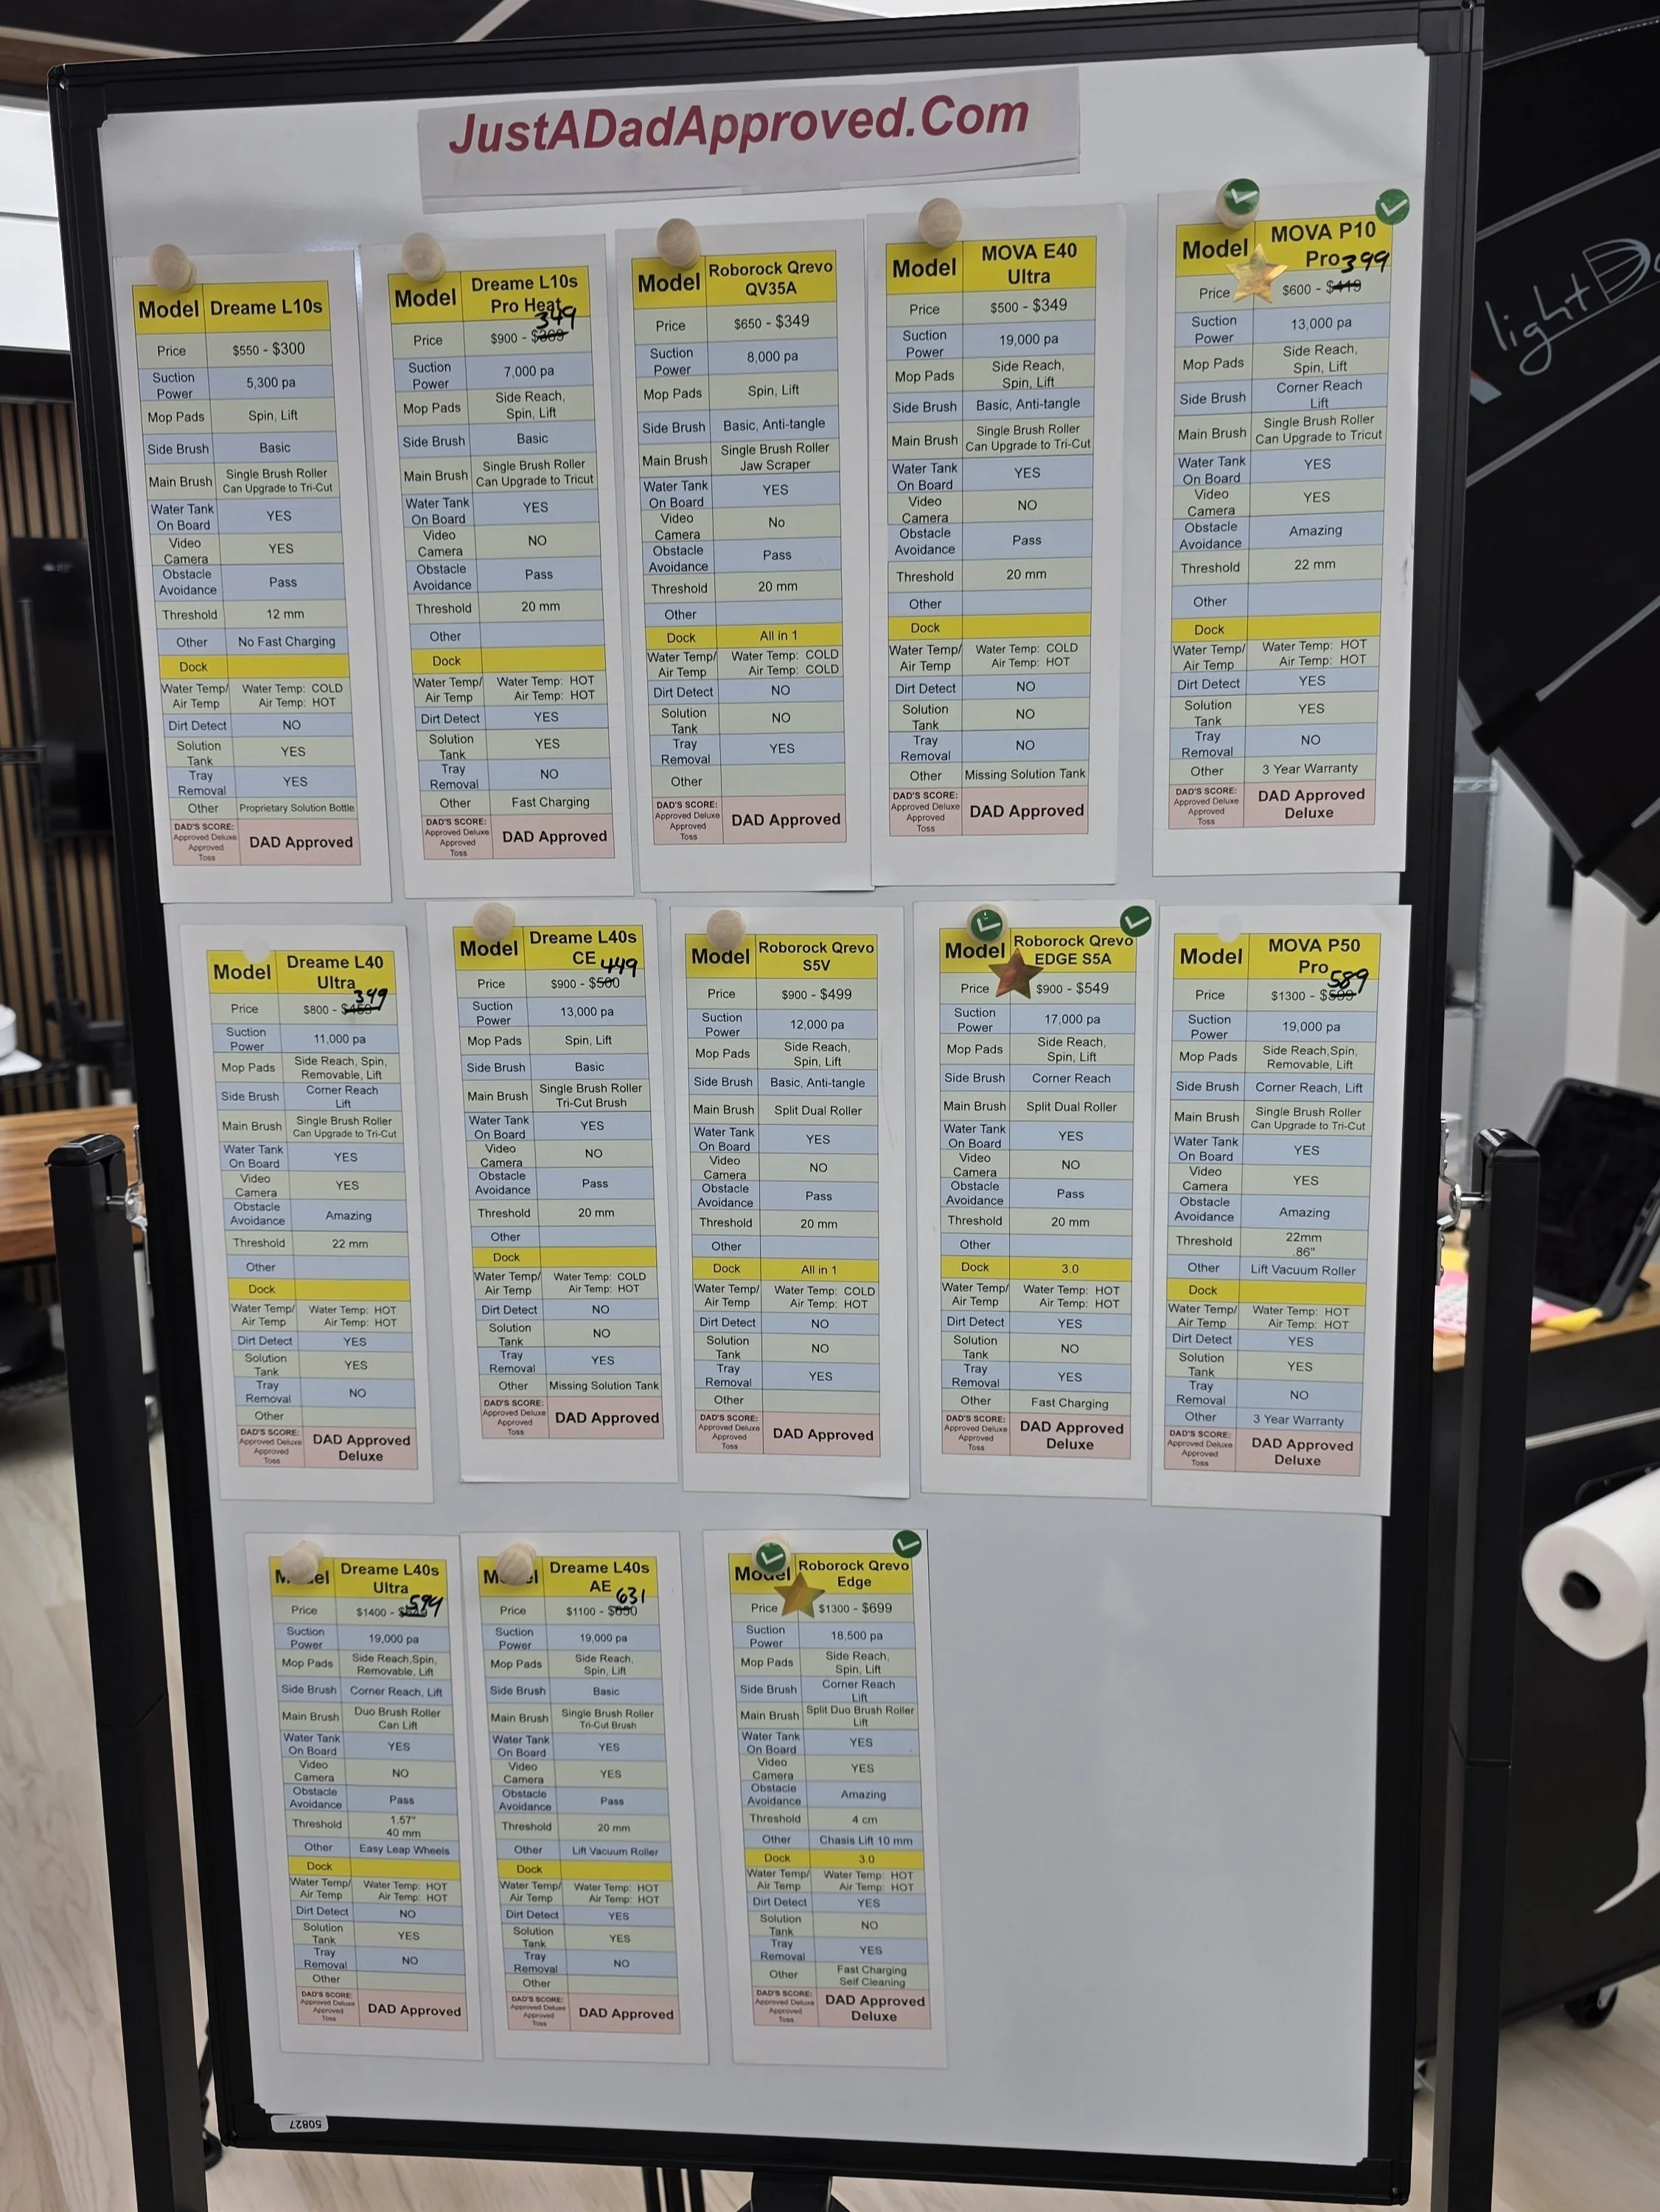 JustADadApproved.Com
Model Dreame L10s
Price $550 - $300
Suction Power 5,300 pa
Mop Pads Spin, Lift
Side Brush Basic
Main Brush Single Brush Roller Can Upgrade to Tri-Cut
Water Tank On Board YES
Video Camera YES
Obstacle Avoidance Pass
Threshold 12 mm
Other No Fast Charging
Dock
Water Temp/ Air Temp Water Temp: COLD Air Temp: HOT
Dirt Detect NO
Solution Tank YES
Tray Removal YES
Other Proprietary Solution Bottle
DAD'S SCORE: Approved Deluxe Approved Toss DAD Approved
Model Dreame L10s Pro Heat
349
Price $900 - $369
Suction Power 7,000 pa
Mop Pads Side Reach, Spin, Lift
Side Brush Basic
Main Brush Single Brush Roller Can Upgrade to Tricut
Water Tank On Board YES
Video Camera NO
Obstacle Avoidance Pass
Threshold 20 mm
Other
Dock
Water Temp/ Air Temp Water Temp: HOT Air Temp: HOT
Dirt Detect YES
Solution Tank YES
Tray Removal NO
Other Fast Charging
DAD'S SCORE: Approved Deluxe Approved Toss DAD Approved
Model Roborock Qrevo QV35A
Price $650 - $349
Suction Power 8,000 pa
Mop Pads Spin, Lift
Side Brush Basic, Anti-tangle
Main Brush Single Brush Roller Jaw Scraper
Water Tank On Board YES
Video Camera No
Obstacle Avoidance Pass
Threshold 20 mm
Other
Dock All in 1
Water Temp/ Air Temp Water Temp: COLD Air Temp: COLD
Dirt Detect NO
Solution Tank NO
Tray Removal YES
Other
DAD'S SCORE: Approved Deluxe Approved Toss DAD Approved
Model MOVA E40 Ultra
Price $500 - $349
Suction Power 19,000 pa
Mop Pads Side Reach, Spin, Lift
Side Brush Basic, Anti-tangle
Main Brush Single Brush Roller Can Upgrade to Tri-Cut
Water Tank On Board YES
Video Camera NO
Obstacle Avoidance Pass
Threshold 20 mm
Other
Dock
Water Temp/ Air Temp Water Temp: COLD Air Temp: HOT
Dirt Detect NO
Solution Tank NO
Tray Removal NO
Other Missing Solution Tank
DAD'S SCORE: Approved Deluxe Approved Toss DAD Approved
Model MOVA P10 Pro
399
Price $600 - $419
Suction Power 13,000 pa
Mop Pads Side Reach, Spin, Lift
Side Brush Corner Reach Lift
Main Brush Single Brush Roller Can Upgrade to Tricut
Water Tank On Board YES
Video Camera YES
Obstacle Avoidance Amazing
Threshold 22 mm
Other
Dock
Water Temp/ Air Temp Water Temp: HOT Air Temp: HOT
Dirt Detect YES
Solution Tank YES
Tray Removal NO
Other 3 Year Warranty
DAD'S SCORE: Approved Deluxe Approved Toss DAD Approved Deluxe
Model Dreame L40 Ultra
349
Price $800 -
Suction Power 11,000 pa
Mop Pads Side Reach, Spin, Removable, Lift
Side Brush Corner Reach Lift
Main Brush Single Brush Roller Can Upgrade to Tri-Cut
Water Tank On Board YES
Video Camera YES
Obstacle Avoidance Amazing
Threshold 22 mm
Other
Dock
Water Temp/ Air Temp Water Temp: HOT Air Temp: HOT
Dirt Detect YES
Solution Tank YES
Tray Removal NO
Other
DAD'S SCORE: Approved Deluxe Approved Toss DAD Approved Deluxe
Model Dreame L40s CE
449
Price $900 - $500
Suction Power 13,000 pa
Mop Pads Spin, Lift
Side Brush Basic
Main Brush Single Brush Roller Tri-Cut Brush
Water Tank On Board YES
Video Camera NO
Obstacle Avoidance Pass
Threshold 20 mm
Other
Dock
Water Temp/ Air Temp Water Temp: COLD Air Temp: HOT
Dirt Detect NO
Solution Tank NO
Tray Removal YES
Other Missing Solution Tank
DAD'S SCORE: Approved Deluxe Approved Toss DAD Approved
Model Roborock Qrevo S5V
Price $900 - $499
Suction Power 12,000 pa
Mop Pads Side Reach, Spin, Lift
Side Brush Basic, Anti-tangle
Main Brush Split Dual Roller
Water Tank On Board YES
Video Camera NO
Obstacle Avoidance Pass
Threshold 20 mm
Other
Dock All in 1
Water Temp/ Air Temp Water Temp: COLD Air Temp: HOT
Dirt Detect NO
Solution Tank NO
Tray Removal YES
Other
DAD'S SCORE: Approved Deluxe Approved Toss DAD Approved
Model Roborock Qrevo EDGE S5A
Price $900 - $549
Suction Power 17,000 pa
Mop Pads Side Reach, Spin, Lift
Side Brush Corner Reach
Main Brush Split Dual Roller
Water Tank On Board YES
Video Camera NO
Obstacle Avoidance Pass
Threshold 20 mm
Other
Dock 3.0
Water Temp/ Air Temp Water Temp: HOT Air Temp: HOT
Dirt Detect YES
Solution Tank NO
Tray Removal YES
Other Fast Charging
DAD'S SCORE: Approved Deluxe Approved Toss DAD Approved Deluxe
Model MOVA P50 Pro
589
Price $1300 - $599
Suction Power 19,000 pa
Mop Pads Side Reach,Spin, Removable, Lift
Side Brush Corner Reach, Lift
Main Brush Single Brush Roller Can Upgrade to Tri-Cut
Water Tank On Board YES
Video Camera YES
Obstacle Avoidance Amazing
Threshold 22mm .86"
Other Lift Vacuum Roller
Dock
Water Temp/ Air Temp Water Temp: HOT Air Temp: HOT
Dirt Detect YES
Solution Tank YES
Tray Removal NO
Other 3 Year Warranty
DAD'S SCORE: Approved Deluxe Approved Toss DAD Approved Deluxe
Model Dreame L40s Ultra
594
Price $1400 -
Suction Power 19,000 pa
Mop Pads Side Reach,Spin, Removable, Lift
Side Brush Corner Reach, Lift
Main Brush Duo Brush Roller Can Lift
Water Tank On Board YES
Video Camera NO
Obstacle Avoidance Pass
Threshold 1.57" 40 mm
Other Easy Leap Wheels
Dock
Water Temp/ Air Temp Water Temp: HOT Air Temp: HOT
Dirt Detect NO
Solution Tank YES
Tray Removal NO
Other
DAD'S SCORE: Approved Deluxe Approved Toss DAD Approved
Model Dreame L40s AE
631
Price $1100 - $650
Suction Power 19,000 pa
Mop Pads Side Reach, Spin, Lift
Side Brush Basic
Main Brush Single Brush Roller Tri-Cut Brush
Water Tank On Board YES
Video Camera YES
Obstacle Avoidance Pass
Threshold 20 mm
Other Lift Vacuum Roller
Dock
Water Temp/ Air Temp Water Temp: HOT Air Temp: HOT
Dirt Detect YES
Solution Tank YES
Tray Removal NO
Other
DAD'S SCORE: Approved Deluxe Approved Toss DAD Approved
Model Roborock Qrevo Edge
Price $1300 - $699
Suction Power 18,500 pa
Mop Pads Side Reach, Spin, Lift
Side Brush Corner Reach Lift
Main Brush Split Duo Brush Roller Lift
Water Tank On Board YES
Video Camera YES
Obstacle Avoidance Amazing
Threshold 4 cm
Other Chasis Lift 10 mm
Dock 3.0
Water Temp/ Air Temp Water Temp: HOT Air Temp: HOT
Dirt Detect YES
Solution Tank NO
Tray Removal YES
Other Fast Charging Self Cleaning
DAD'S SCORE: Approved Deluxe Approved Toss DAD Approved Deluxe
light
50827